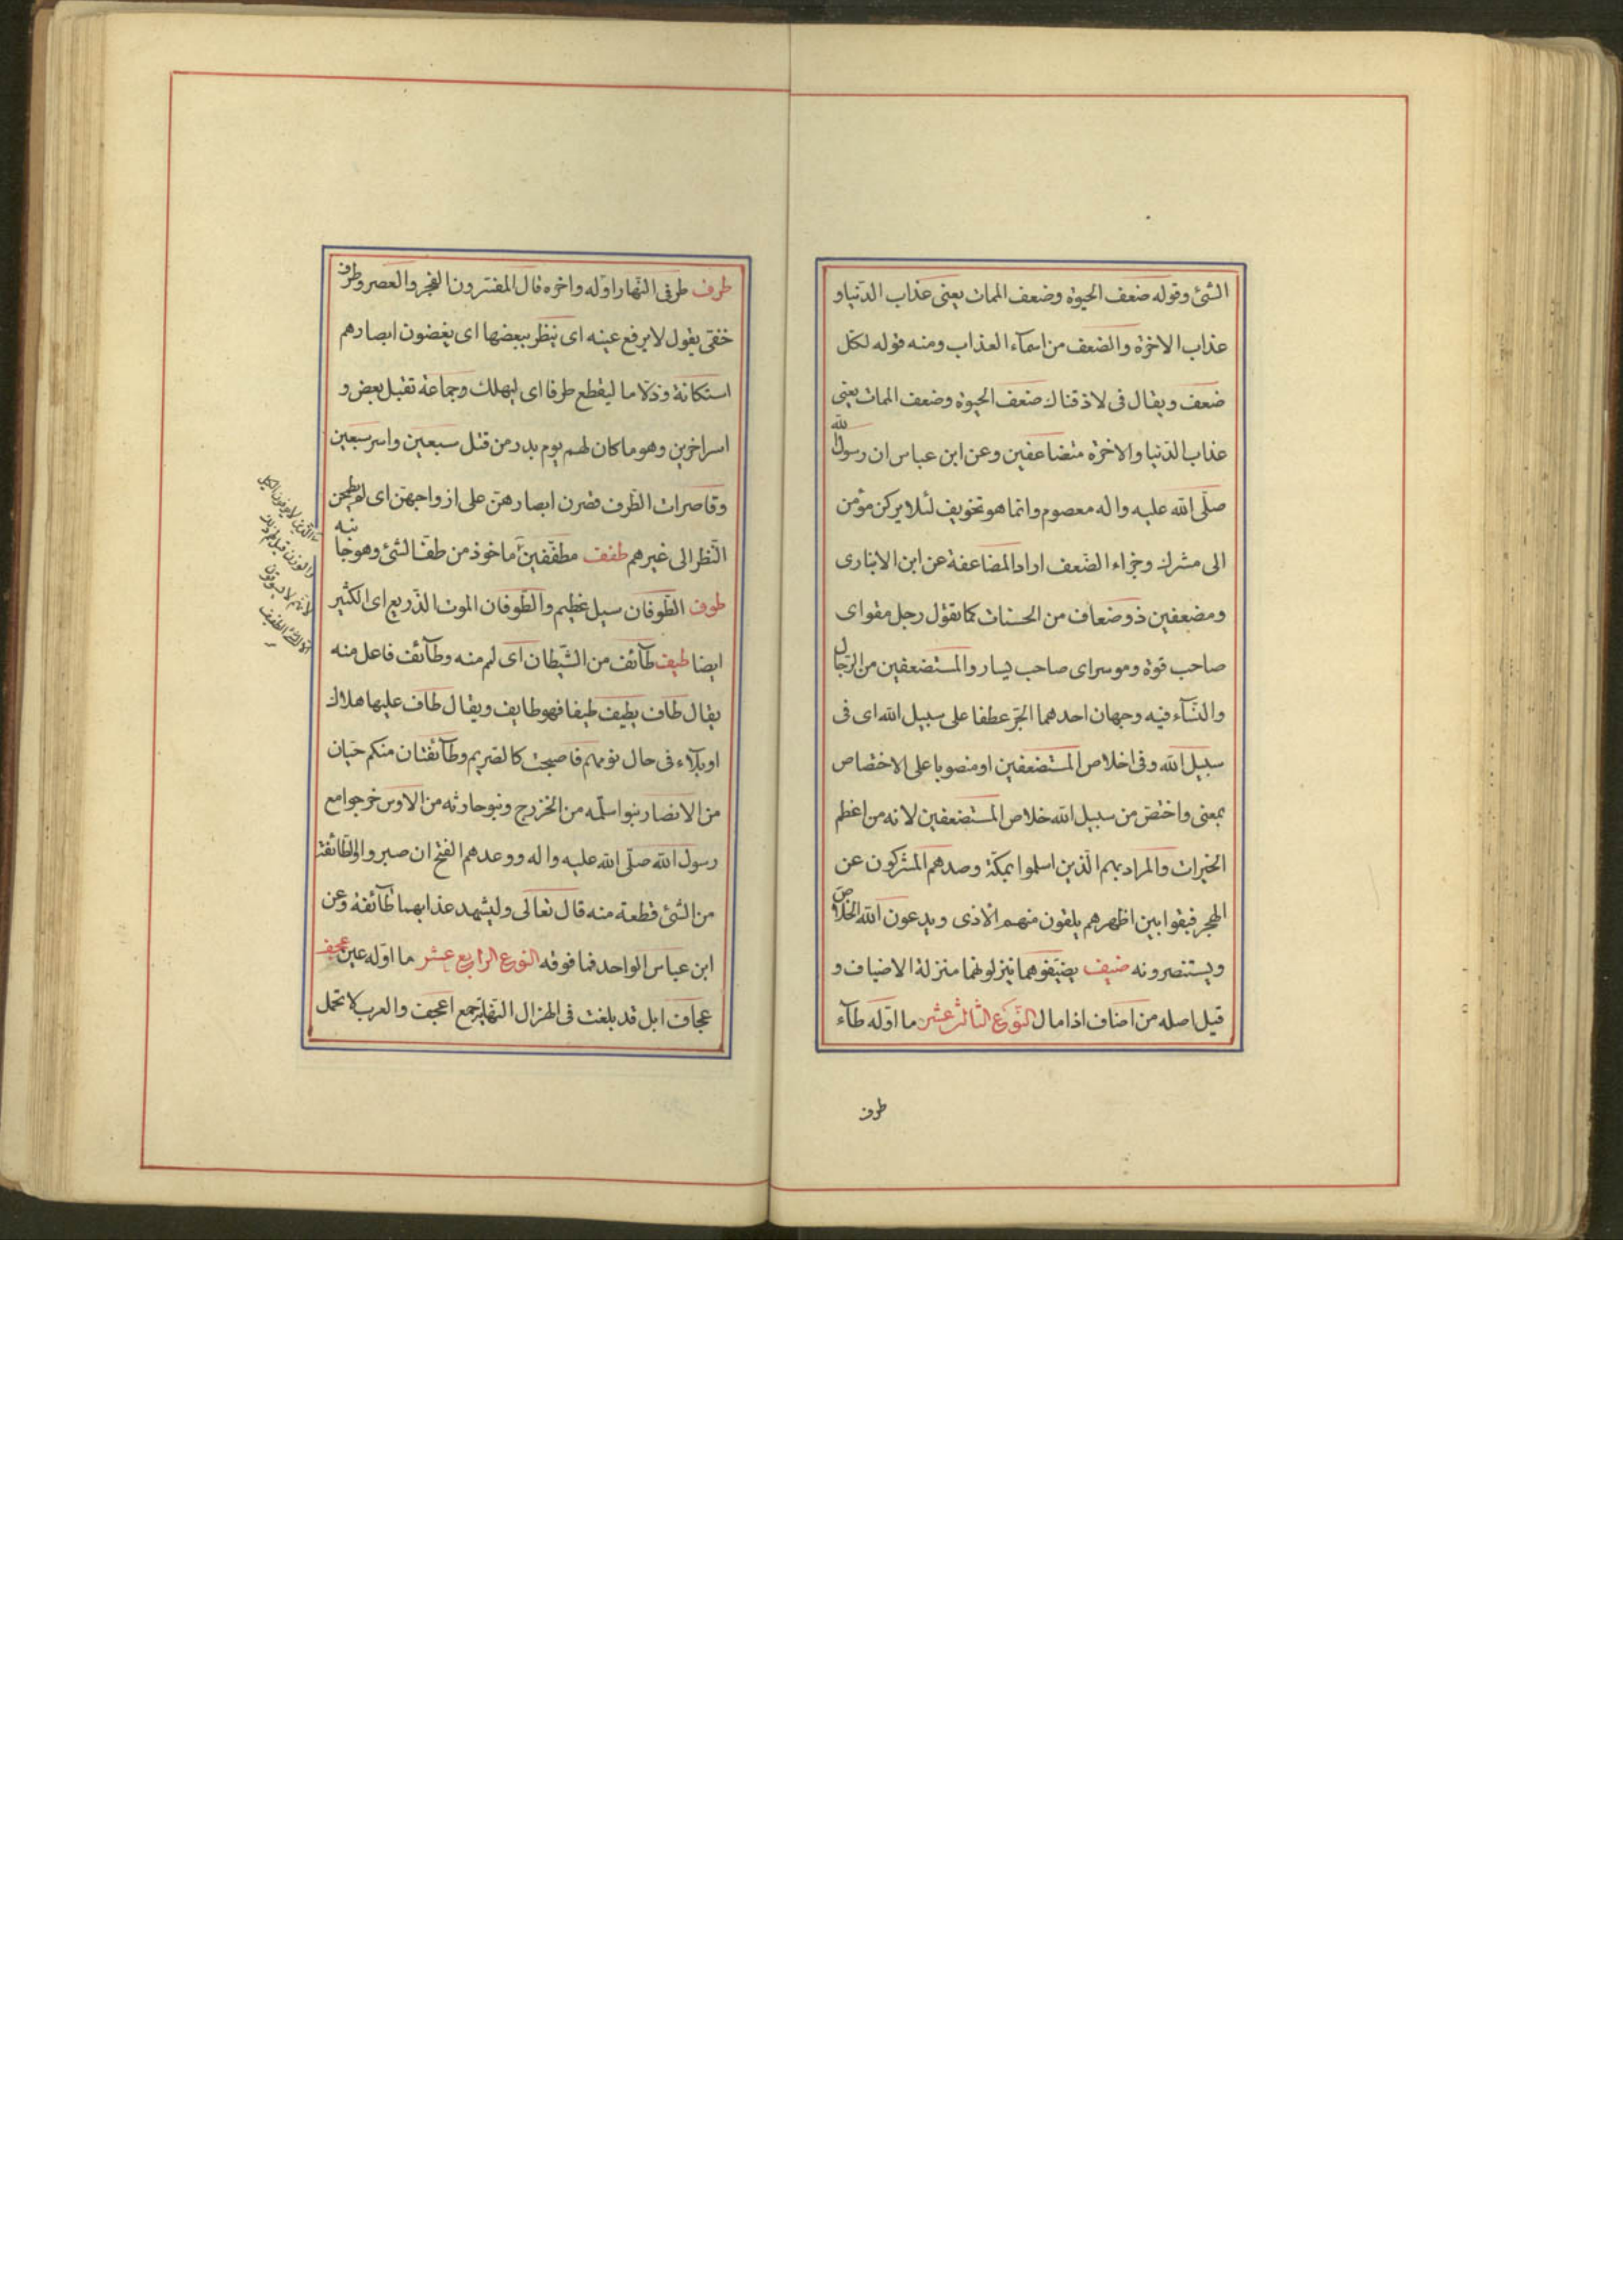 الشئ وقوله ضعف الحيوة وضعف الممات يعنى عذاب الدّنيا و
عذاب الاخرة والضعف من اسمآء العذاب ومنه قوله لكلّ
ضعف ويقال فى لاذقناك ضعف الحيوة وضعف الممات يعنى
عذاب الدّنيا والاخرة متضاعفين وعن ابن عباس ان رسول الله
صلّى الله عليه واله معصوم وانما هو تخويف لئلا يركن مؤمن
الى مشرك وجزاء الضّعف اراد المضاعفة عن ابن الانبارى
ومضعفين ذو ضعاف من الحسنات كما تقول رجل مقواى
صاحب قوة وموسر اى صاحب يسار والمستضعفين من الرّجال
والنّسآء فيه وجهان احدهما الجرّ عطفا على سبيل الله اى فى
سبيل الله وفى اخلاص المستضعفين او منصوبا على الاختصاص
بمعنى واختصّ من سبيل الله خلاص المستضعفين لانه من اعظم
الخيرات والمراد بهم الّذين اسلموا بمكّة وصدهم المشركون عن
الهجر فبقوا بين اظهرهم يلقون منهم الاذى ويدعون الله الخلاص
ويستنصرونه ضيف يضيّفوهما ينزلونهما منزلة الاضياف و
قيل اصله من اضاف اذا مال النّوع الثالث عشر ما اوّله طآء
طرف
طرف طرفى النّهار اوّله واخره قال المفسّرون الفجر والعصر وطرف
خفىّ يقول لا يرفع عينه اى ينظر ببعضها اى يغضون ابصارهم
استكانة وذلّا ما ليقطع طرفا اى ليهلك وجماعة تقبل بعض و
اسر اخرين وهو ما كان لهم يوم بدر من قتل سبعين واسر سبعين
وقاصرات الطّرف قصرن ابصارهنّ على ازواجهنّ اى لم يطمحن
النّظر الى غيرهم طفف مطفّفين ماخوذ من طفّ الشئ وهو جانبه
طوف الطّوفان سيل عظيم والطّوفان الموت الذّريع اى الكثير
ايضا طيف طآئف من الشّيطان اى لم منه وطآئف فاعل منه
يقال طاف يطيف طيفا فهو طايف ويقال طاف عليها هلاك
او بلآء فى حال نومهم فاصبحت كالصّريم وطآئفتان منكم حيّان
من الانصار بنوا سلمه من الخزرج وبنو حارثه من الاوس خرجوا مع
رسول الله صلّى الله عليه واله ووعدهم الفتح ان صبروا والطّائفة
من الشئ قطعة منه قال تعالى وليشهد عذابهما طآئفة وعن
ابن عباس الواحد فما فوقه النوع الرابع عشر ما اوّله عين عجف
عجاف ابل قد بلغت فى الهزال النّهاية جمع اعجف والعرب لا تحمل
الّذين لا يوفون الكيل
والوزن قيل لهم